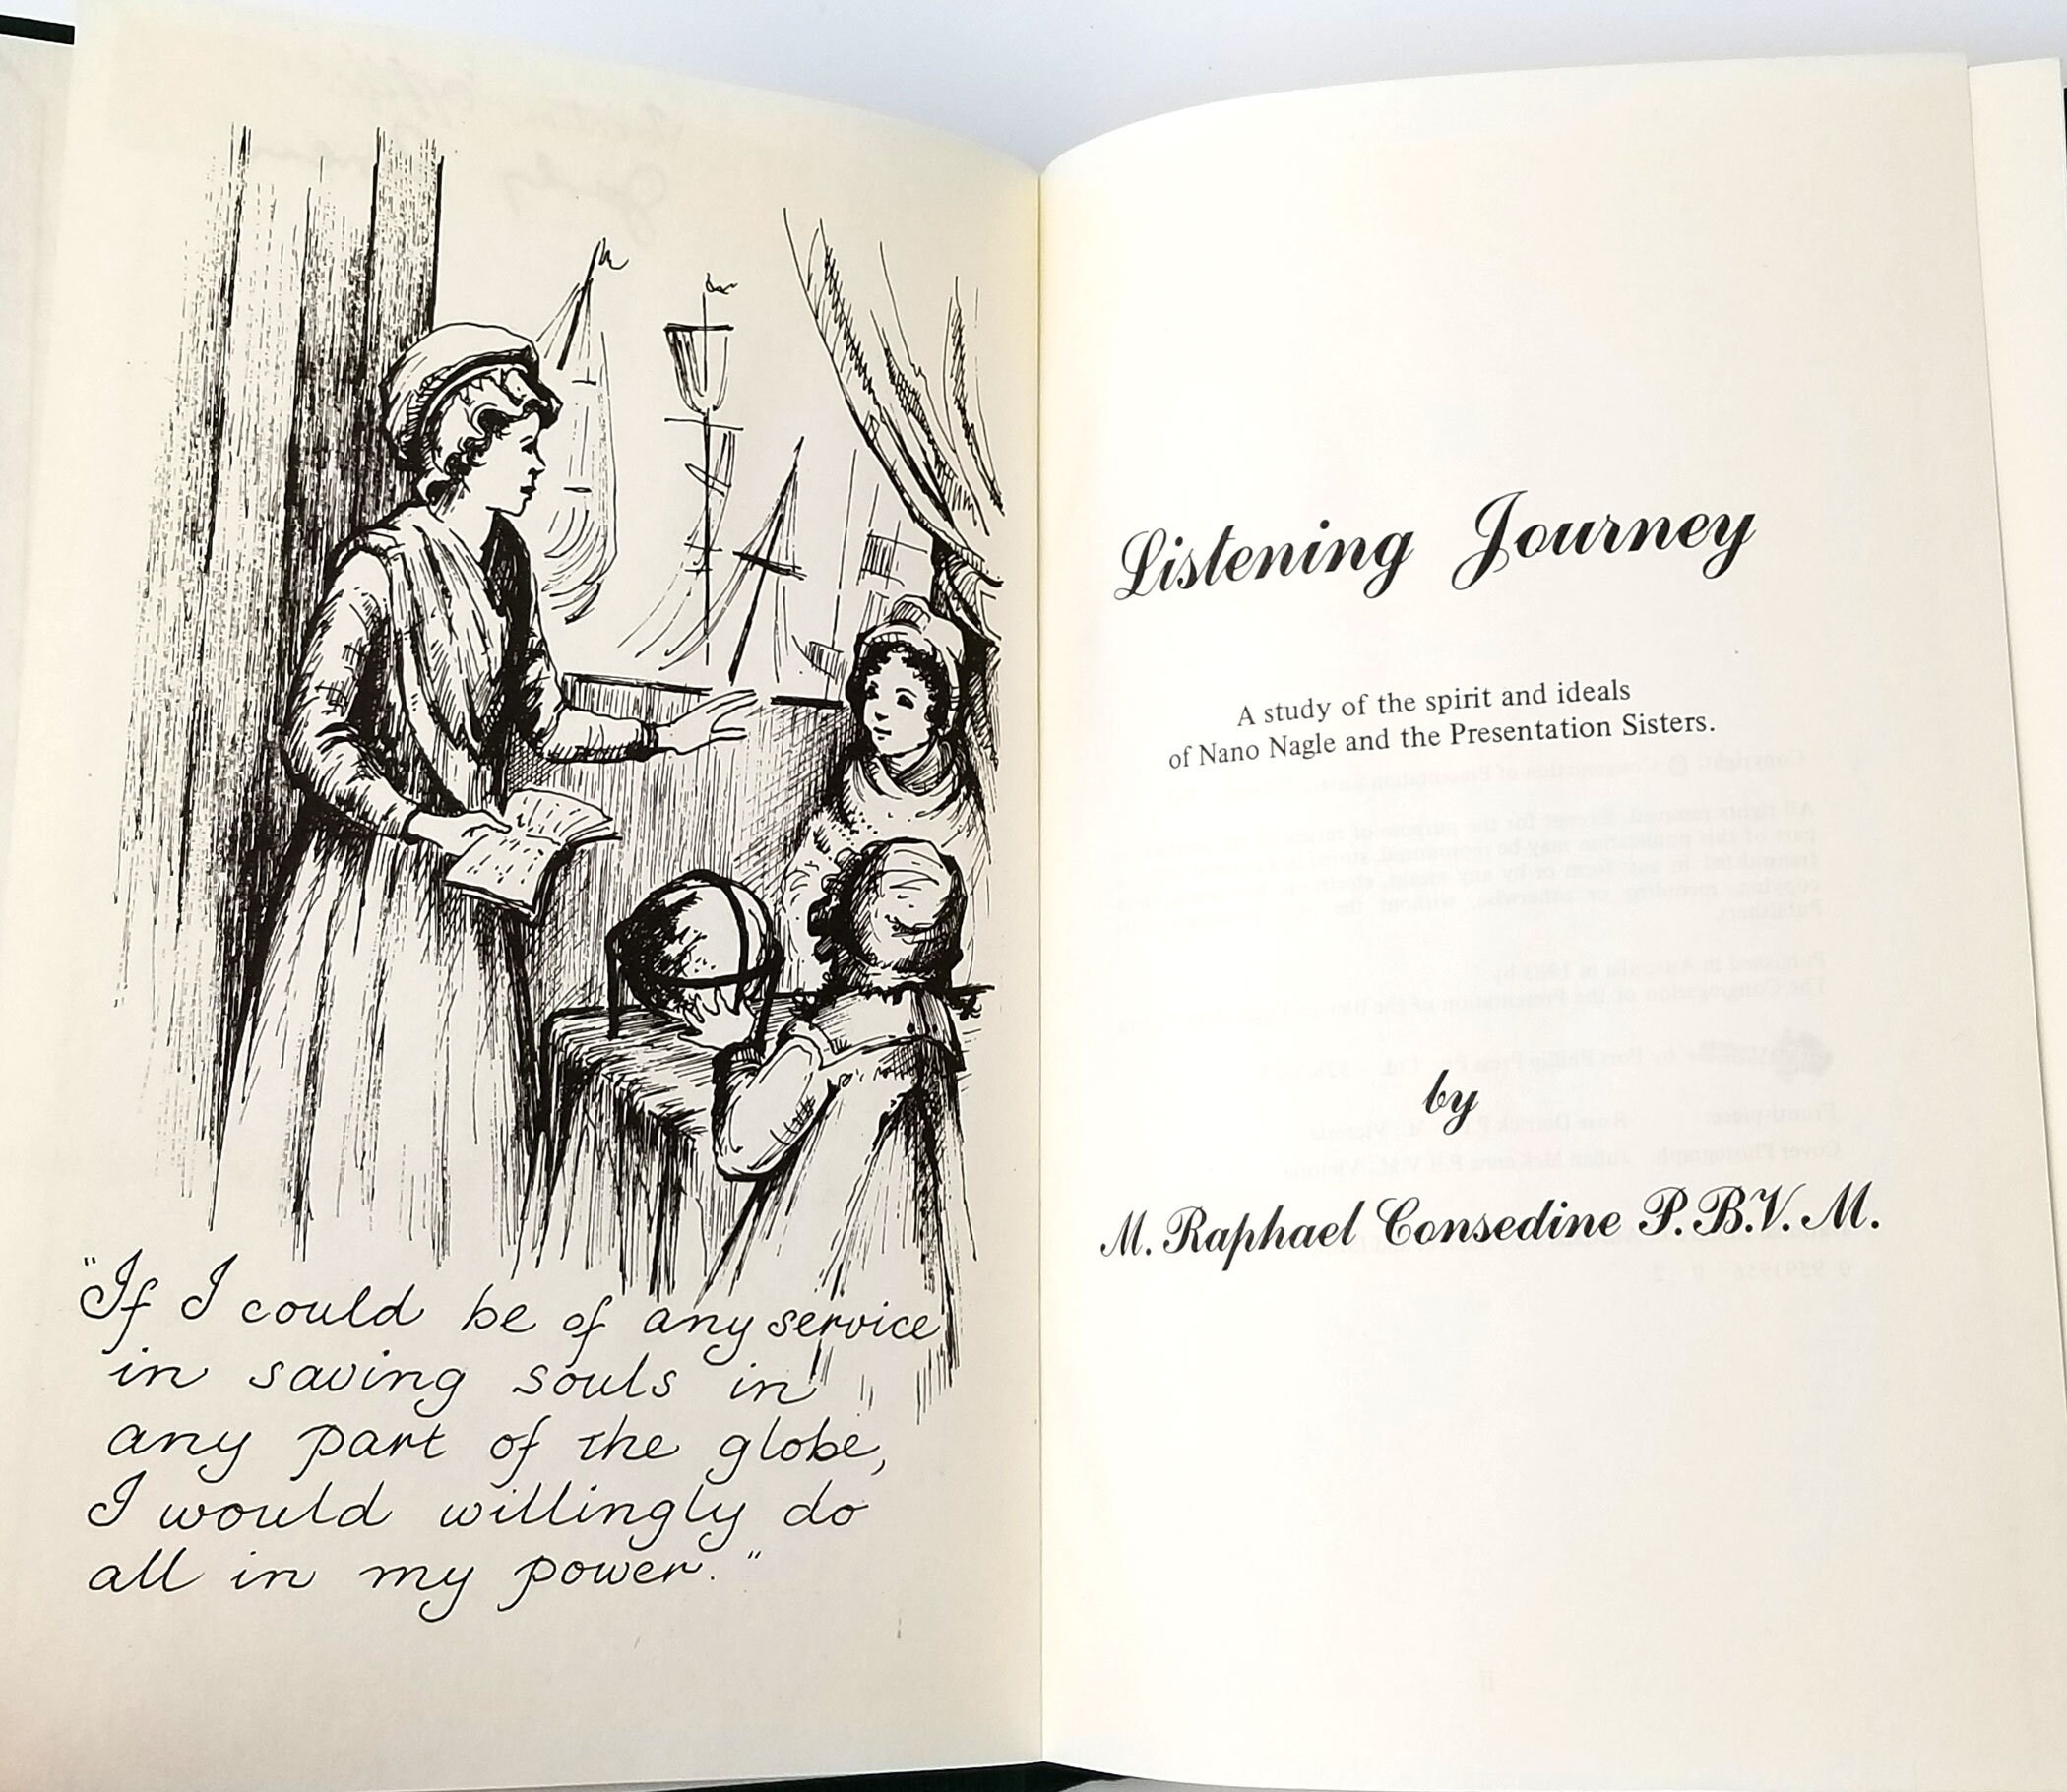 "If I could be of any service
in saving souls in
any part of the globe,
I would willingly do
all in my power."
Listening Journey
A study of the spirit and ideals
of Nano Nagle and the Presentation Sisters.
by
M. Raphael Consedine P.B.V.M.